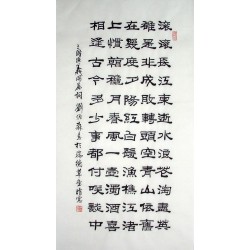 滚滚長江東逝水浪花淘盡英
雄是非成敗轉頭空青山依舊
在幾度夕陽紅白髮漁樵江渚
上慣看秋月春風一壺濁酒喜
相逢古今多少事都付笑談中
三國演義開篇詞 劉